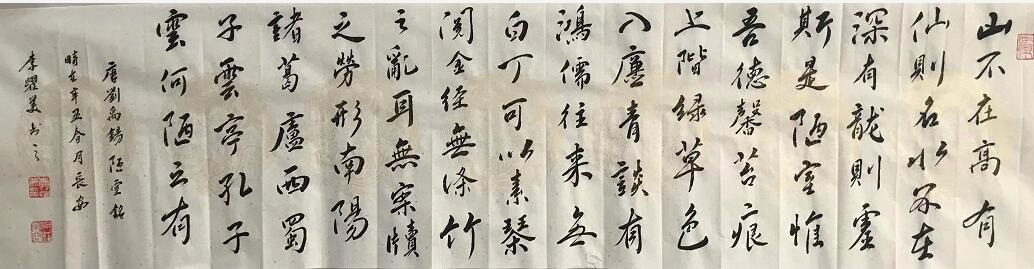 山不在高有
仙則名水不在
深有龍則靈
斯是陋室惟
吾德馨苔痕
上階緑草色
入廉青談有
鴻儒往来無
白丁可以素琴
閲金经無絲竹
之亂耳無案牘
之勞形南陽
諸葛廬西蜀
子雲亭孔子
雲何陋之有
唐劉禹錫陋室銘
時在辛丑春月長安
李躍美书之